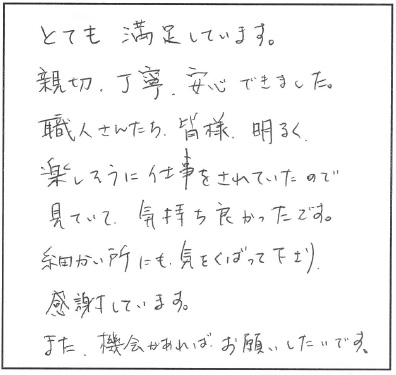 とても 満足しています。
親切、丁寧、安心できました。
職人さんたち、皆様、明るく、
楽しそうに仕事をされていたので
見ていて、気持ち良かったです。
細かい所にも、気をくばって下さり、
感謝しています。
また、機会があれば、お願いしたいです。